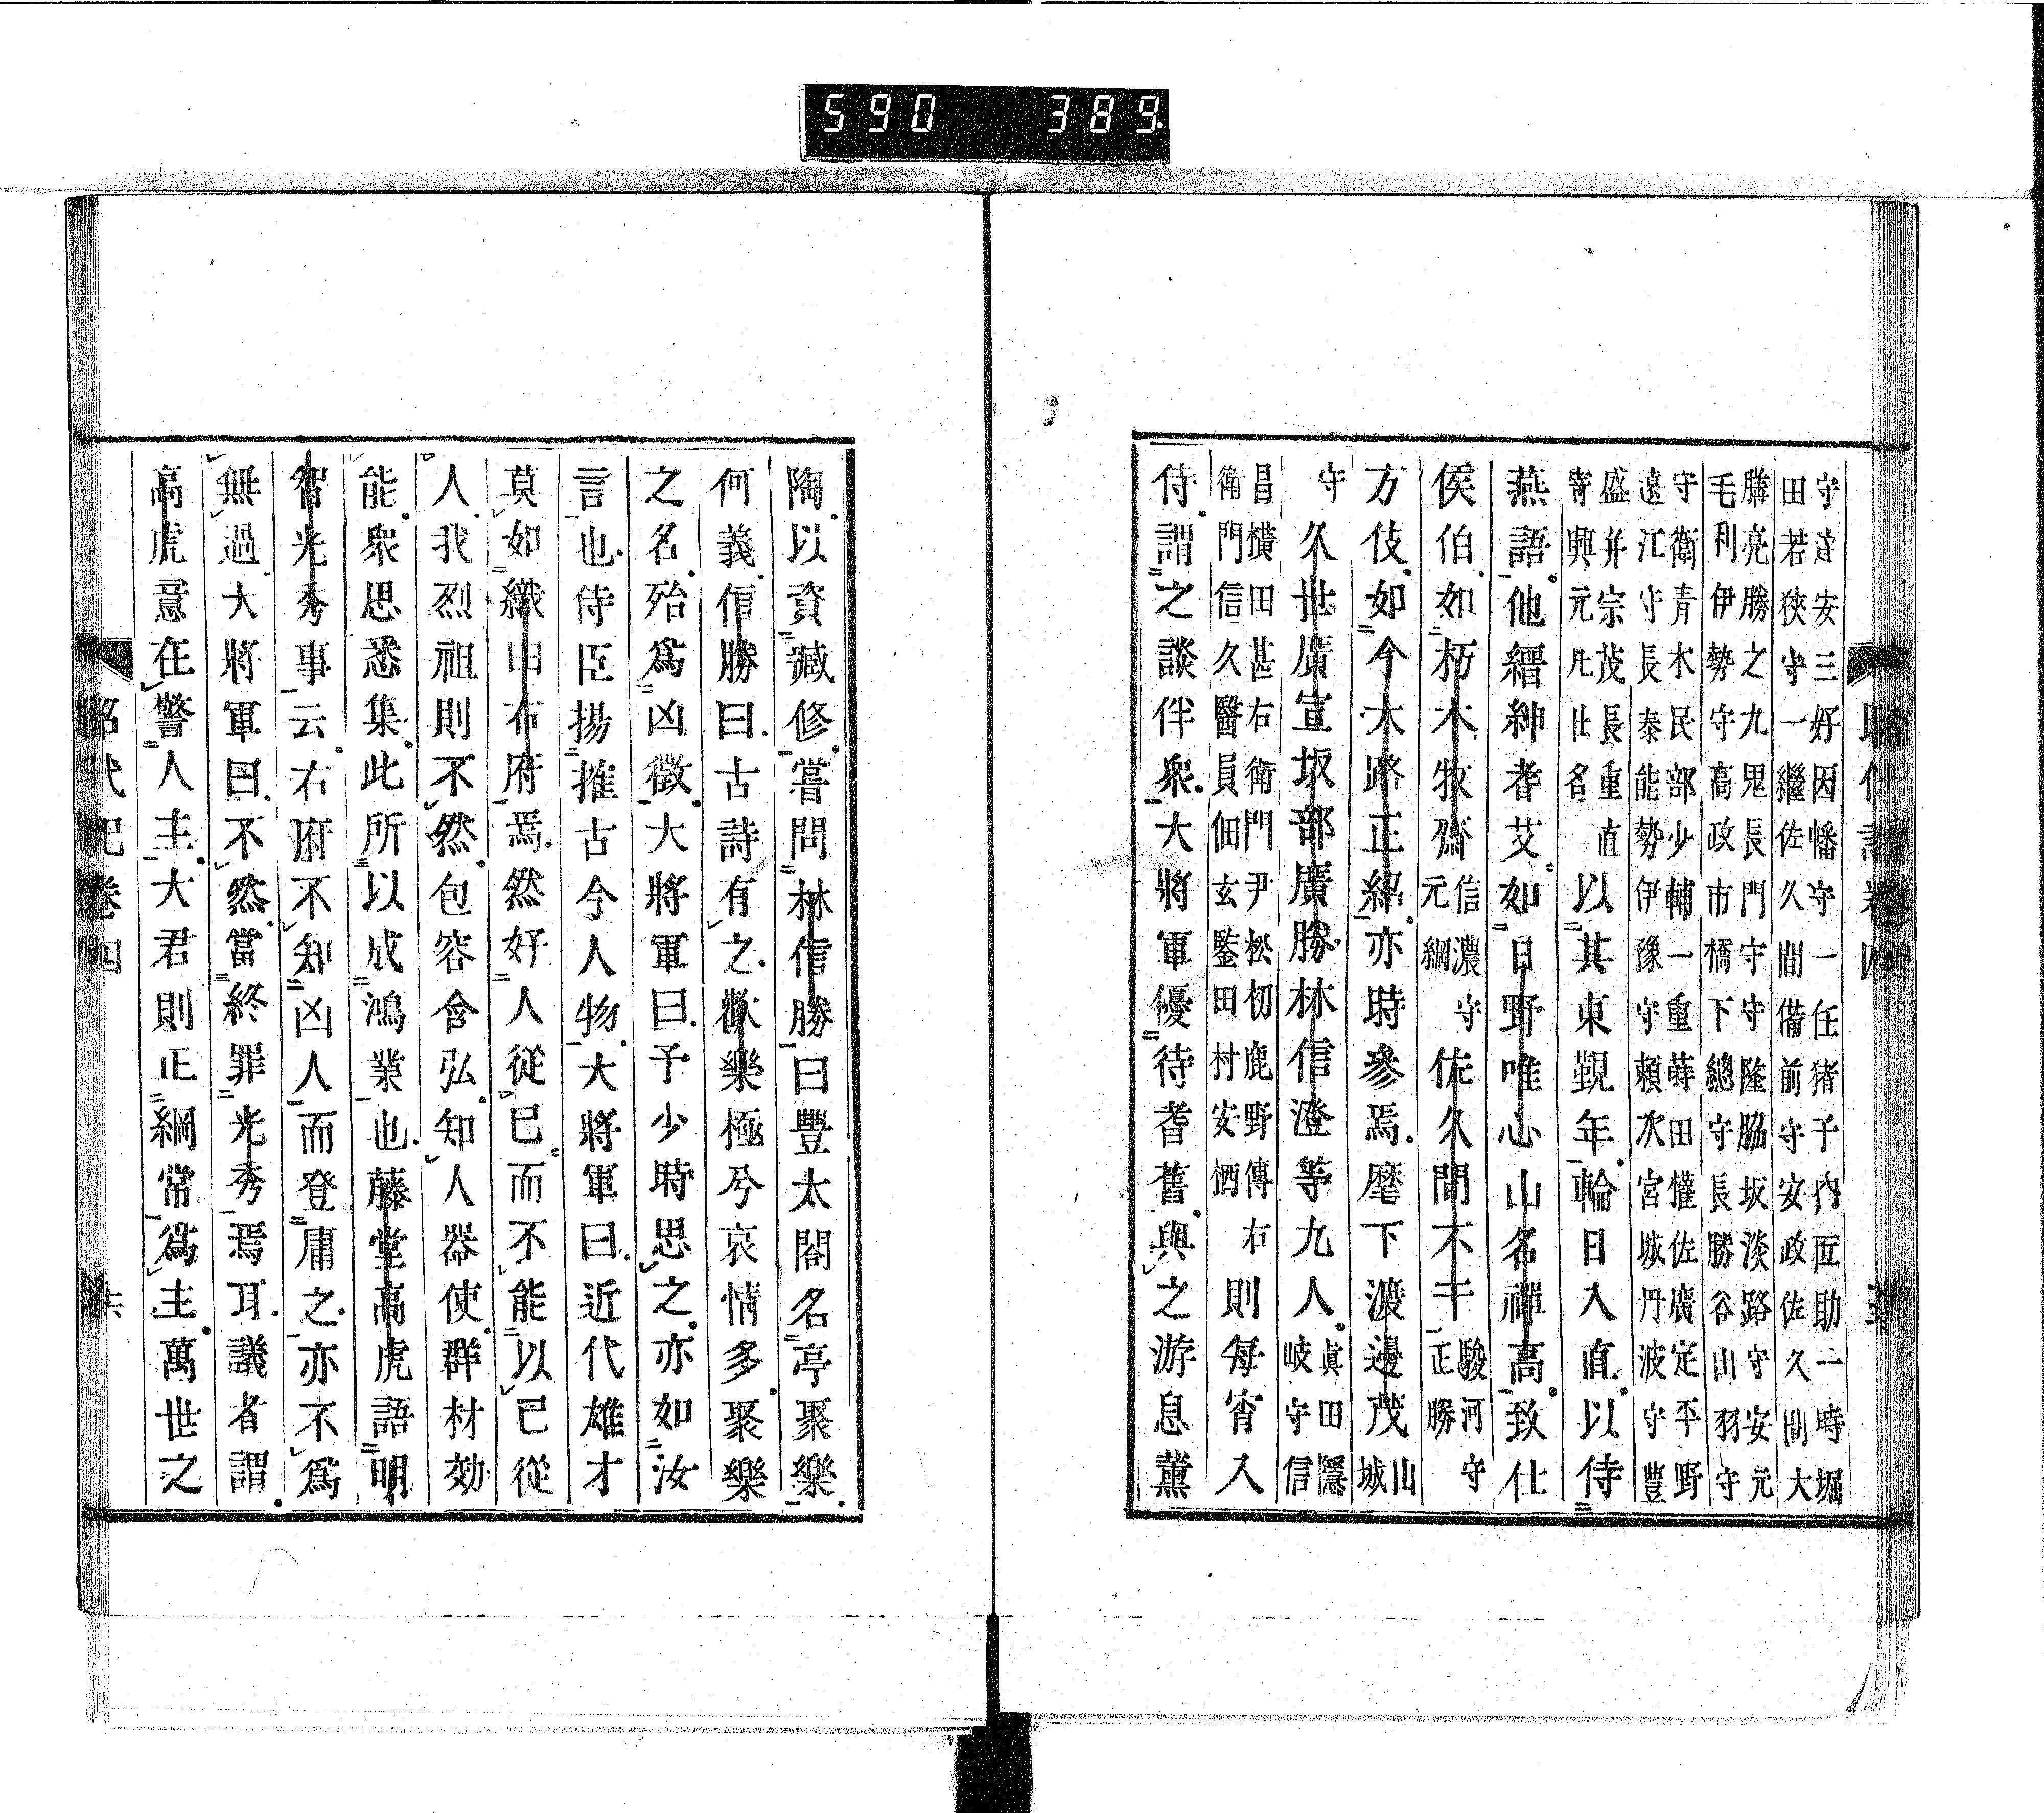 590 389
守達安三好因幡守一任猪子内匠助一時堀
田若狹守一繼佐久間備前守安政佐久間大
膳亮勝之九鬼長門守守隆脇坂淡路守安元
毛利伊勢守高政市橋下總守長勝谷出羽守
守衛青木民部少輔一重蒔田權佐廣定平野
遠江守長泰能勢伊豫守頼次宮城丹波守豐
盛并宗茂長重直
寄興元凡廿名
以其東覲年輪日入直以侍
燕語他縉紳耆艾如日野唯心山名禪高致仕
侯伯如朽木牧齋信濃守元綱佐久間不干駿河守正勝
方伎如今大路正紹亦時參焉麾下渡邊茂山城
守久世廣宣坂部廣勝林信澄等九人眞田隱岐守信
昌横田甚右衛門尹松初鹿野傳右
衛門信久醫員佃玄鑒田村安栖
則每宵入
侍謂之談伴衆大將軍優待耆舊與之游息薰
昭代記卷四
陶以資臧修嘗問林信勝曰豐太閤名亭聚樂
何義信勝曰古詩有之歡樂極兮哀情多聚樂
之名殆爲凶徵大將軍曰予少時思之亦如汝
言也侍臣揚搉古今人物大將軍曰近代雄才
莫如織田布府焉然好人從已而不能以已從
人我烈祖則不然包容含弘知人器使群材効
能衆思悉集此所以成鴻業也藤堂高虎語明
智光秀事云右府不知凶人而登庸之亦不爲
無過大將軍曰不然當終罪光秀焉耳議者謂
高虎意在警人主大君則正綱常爲主萬世之
昭代記卷四